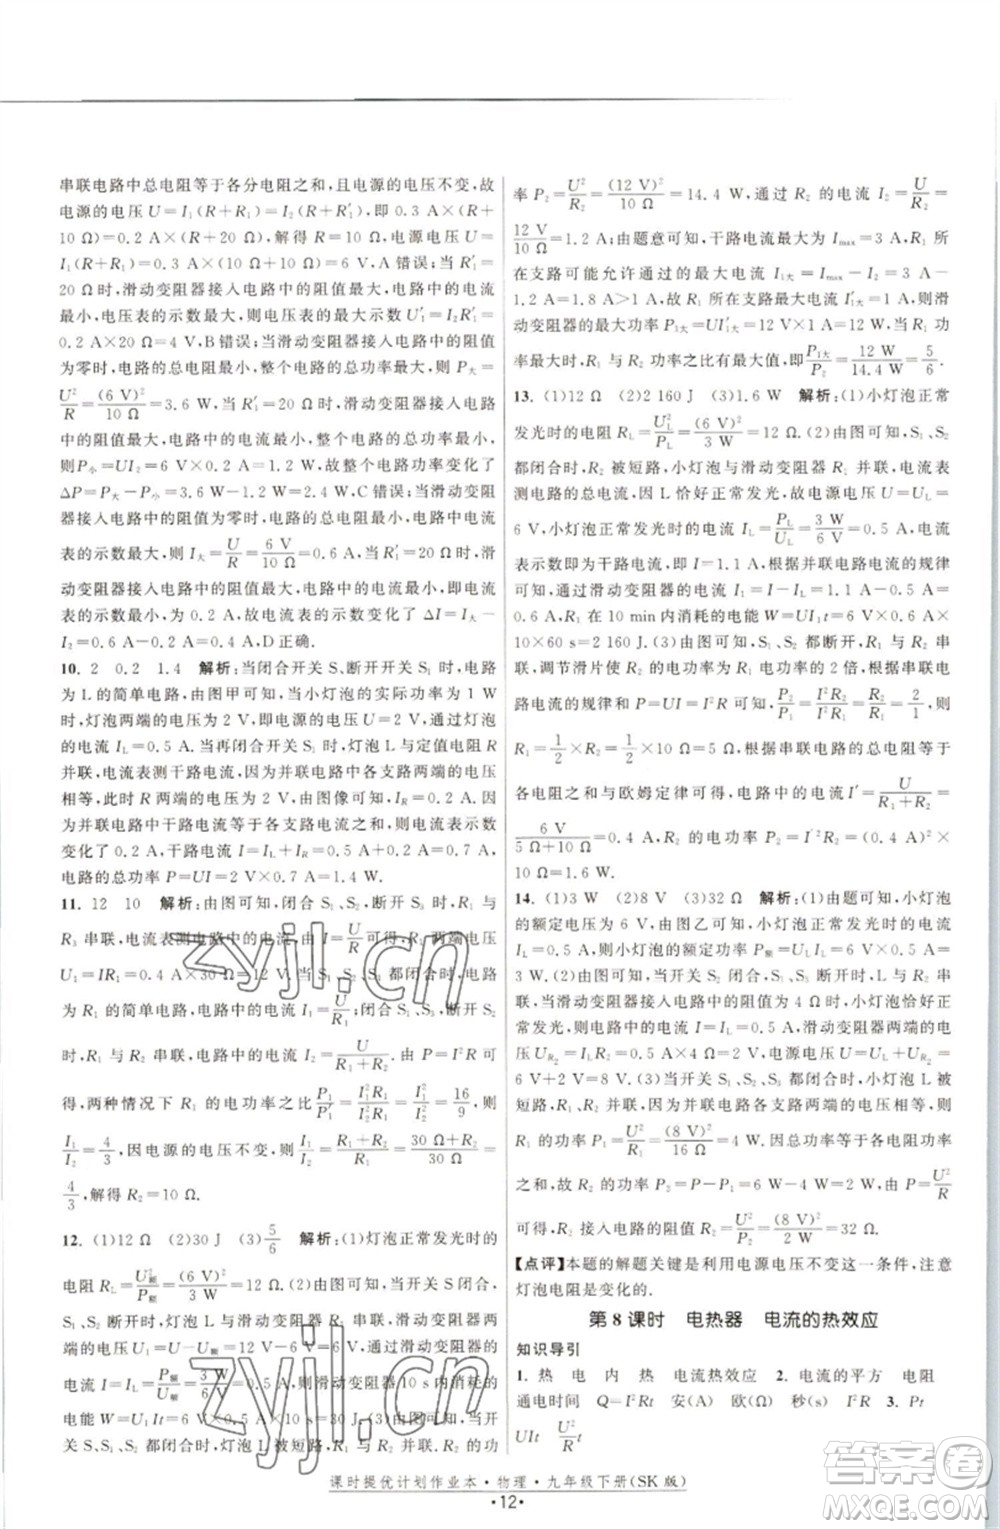 串联电路中总电阻等于各分电阻之和，且电源的电压不变，故
电源的电压 U＝I₁(R＋R₁)＝I₂(R＋R₁′)，即 0.3 A×(R＋
10 Ω)＝0.2 A×(R＋20 Ω)，解得 R＝10 Ω，电源电压 U＝
I₁(R＋R₁)＝0.3 A×(10 Ω＋10 Ω)＝6 V，A 错误；当 R₁′＝
20 Ω 时，滑动变阻器接入电路中的阻值最大，电路中的电流
最小，电压表的示数最大，则电压表的最大示数 U₁′＝I₂R₁′＝
0.2 A×20 Ω＝4 V，B 错误；当滑动变阻器接入电路中的阻值
为零时，电路的总电阻最小，电路的总功率最大，则 P大＝
U²/R＝(6 V)²/10 Ω＝3.6 W，当 R₁′＝20 Ω 时，滑动变阻器接入电路
中的阻值最大，电路中的电流最小，电路的总功率最小，
则 P小＝UI₂＝6 V×0.2 A＝1.2 W，故整个电路功率变化了
ΔP＝P大－P小＝3.6 W－1.2 W＝2.4 W，C 错误；当滑动变阻
器接入电路中的阻值为零时，电路的总电阻最小，电路中电流
表的示数最大，则 I大＝U/R＝6 V/10 Ω＝0.6 A，当 R₁′＝20 Ω 时，滑
动变阻器接入电路中的阻值最大，电路中的电流最小，
I₂＝0.2 A，故电流表的示数变化了 ΔI＝I大－
I₂＝0.6 A－0.2 A＝0.4 A，D 正确.
10. 2 0.2 1.4 解析：当闭合开关 S、断开开关 S₁ 时，电路
为 L 的简单电路，由图甲可知，当小灯泡的实际功率为 1 W
时，灯泡两端的电压为 2 V，即电源的电压 U＝2 V，通过灯泡
的电流 I_L＝0.5 A. 当再闭合开关 S₁ 时，灯泡 L 与定值电阻 R
并联，电流表测干路电流，因为并联电路中各支路两端的电压
相等，此时 R 两端的电压为 2 V，由图像可知，I_R＝0.2 A. 因
为并联电路中干路电流等于各支路电流之和，则电流表示数
变化了 0.2 A，干路电流 I＝I_L＋I_R＝0.5 A＋0.2 A＝0.7 A，
电路的总功率 P＝UI＝2 V×0.7 A＝1.4 W.
11. 12 10 解析：由图可知，闭合 S₁、S₂，断开 S₃ 时，R₁ 与
R₃ 串联，电流表测电路中的电流，由 I＝U/R 可得，R₁ 两端电压
U₁＝IR₁＝0.4 A×30 Ω＝12 V；当 S₁、S₂、S₃ 都闭合时，电路
为 R₁ 的简单电路，电路中的电流 I₁＝U/R₁；闭合 S₁、S₃，断开 S₂
时，R₁ 与 R₂ 串联，电路中的电流 I₂＝U/(R₁＋R₂)；由 P＝I²R 可
得，两种情况下 R₁ 的电功率之比 P₁/P₁′＝I₁²R₁/I₂²R₁＝I₁²/I₂²＝16/9，则
I₁/I₂＝4/3，因电源的电压不变，则 I₁/I₂＝(R₁＋R₂)/R₁＝(30 Ω＋R₂)/30 Ω＝
4/3，解得 R₂＝10 Ω.
12. (1)12 Ω (2)30 J (3)5/6 解析：(1)灯泡正常发光时的
电阻 R_L＝U额²/P额＝(6 V)²/3 W＝12 Ω. (2)由图可知，只闭合 S 时，
灯泡与滑动变阻器串联，灯泡正常发光，滑动变阻器两
端的电压 U₁＝U－U额＝12 V－6 V＝6 V，电路
中的电流 I＝P额/U额＝3 W/6 V＝0.5 A，滑动变阻器 10 s 内消耗的
电能 W＝U₁It＝6 V×0.5 A×10 s＝30 J. (3)由图可知，
当 S、S₁、S₂ 都闭合时，灯泡被短路，滑动变阻器与 R₂ 并联，R₂ 的功
率 P₂＝U²/R₂＝(12 V)²/10 Ω＝14.4 W，通过 R₂ 的电流 I₂＝U/R₂＝
12 V/10 Ω＝1.2 A；由题意可知，干路电流最大为 Imax＝3 A，R₁ 所
在支路可能允许通过的最大电流 I₁大＝Imax－I₂＝3 A－
1.2 A＝1.8 A＞1 A；故 R₁ 所在支路最大电流 I₁大′＝1 A，滑
动变阻器的最大功率 P₁大＝UI₁大′＝12 V×1 A＝12 W；R₁ 功
率最大时，R₁ 与 R₂ 功率之比有最大值，即 P₁大/P₂＝12 W/14.4 W＝5/6.
13. (1)12 Ω (2)2 160 J (3)1.6 W 解析：(1)小灯泡正常
发光时的电阻 R_L＝U_L²/P_L＝(6 V)²/3 W＝12 Ω. (2)由图可知，S₁、S₂
都闭合时，R₂ 被短路，小灯泡与滑动变阻器 R₁ 并联，电流表
测电路的总电流，因 L 恰好正常发光，故电源电压 U＝U_L＝
6 V，小灯泡正常发光时的电流 I_L＝P_L/U_L＝3 W/6 V＝0.5 A，电流
表示数为干路电流，即 I＝1.1 A，根据并联电路电流的规律
可知，通过滑动变阻器的电流 I₁＝I－I_L＝1.1 A－0.5 A＝
0.6 A，R₁ 在 10 min 内消耗的电能 W＝UI₁t＝6 V×0.6 A×
10×60 s＝2 160 J. (3)由图可知，S₁、S₂ 都断开时，R₁、R₂ 串
联，调节滑片使 R₂ 的电功率为 R₁ 电功率的 2 倍，根据串联电路
电流的规律和 P＝UI＝I²R 可知，P₂/P₁＝I²R₂/I²R₁＝R₂/R₁＝2/1，
R₁＝1/2×R₂＝1/2×10 Ω＝5 Ω，根据串联电路的总电阻等于
各电阻之和与欧姆定律可得，电路中的电流 I′＝U/(R₁＋R₂)＝
6 V/(5 Ω＋10 Ω)＝0.4 A，R₂ 的电功率 P₂＝I′²R₂＝(0.4 A)²×
10 Ω＝1.6 W.
14. (1)3 W (2)8 V (3)32 Ω 解析：(1)由题可知，小灯泡
的额定电压为 6 V，由图乙可知，小灯泡正常发光时的电流
I_L＝0.5 A，小灯泡的额定功率 P额＝U额I_L＝6 V×0.5 A＝
3 W. (2)由图甲可知，当闭合开关 S₂、S₁ 断开时，灯泡与 R₂ 串
联，当滑动变阻器接入电路中的阻值为 4 Ω 时，小灯泡恰好正
常发光，则电路中的电流 I＝I_L＝0.5 A，滑动变阻器两端的电
压 U_R2＝IR₂＝0.5 A×4 Ω＝2 V，电源电压 U＝U_L＋U_R2＝
6 V＋2 V＝8 V. (3)由图可知，S₁、S₂ 都闭合时，小灯泡 L 被
短路，R₁ 与 R₂ 并联，并联电路各支路两端的电压相等，则
R₁ 的功率 P₁＝U²/R₁＝(8 V)²/16 Ω＝4 W，因总功率等于各电阻功率之
和，故 R₂ 的功率 P₂＝P－P₁＝6 W－4 W＝2 W，由 P＝U²/R
可得，R₂ 接入电路的阻值 R₂＝U²/P₂＝(8 V)²/2 W＝32 Ω.
【点评】本题的解题关键是利用电源电压不变这一条件，注意
灯泡电阻是变化的.
第 8 课时 电热器 电流的热效应
知识导引
1. 热 电 内 热 电流热效应 2. 电流的平方 电阻
通电时间 Q＝I²Rt 安(A) 欧(Ω) 秒(s) I²R 3. Pt
UIt U²/R t
课时提优计划作业本·物理·九年级下册(SK 版)
·12·
zyjl.cn
zyjl.cn
答案圈
MXQE.COM